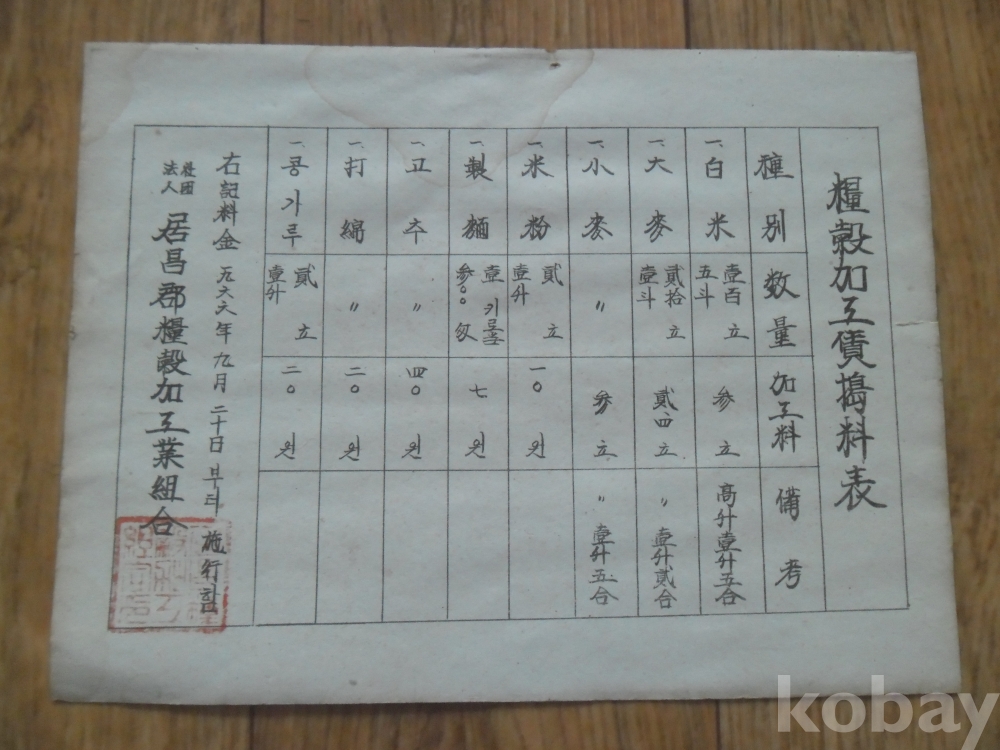 糧穀加工賃搗料表
種別 数量 加工料 備考
一、白米 壹百立 五斗 参立 高升壹升五合
一、大麥 貳拾立 壹斗 貳四立 〃 壹升貳合
一、小麥 〃 参立 〃 壹升五合
一、米粉 貳立 壹升 一〇원
一、製麵 壹키로 参〇〇匁 七원
一、고추 〃 四〇원
一、打綿 〃 二〇원
一、콩가루 貳立 壹升 二〇원
右記料金 一九六六年 九月 二十日 부터 施行함
社団法人 居昌郡糧穀加工業組合
kobay